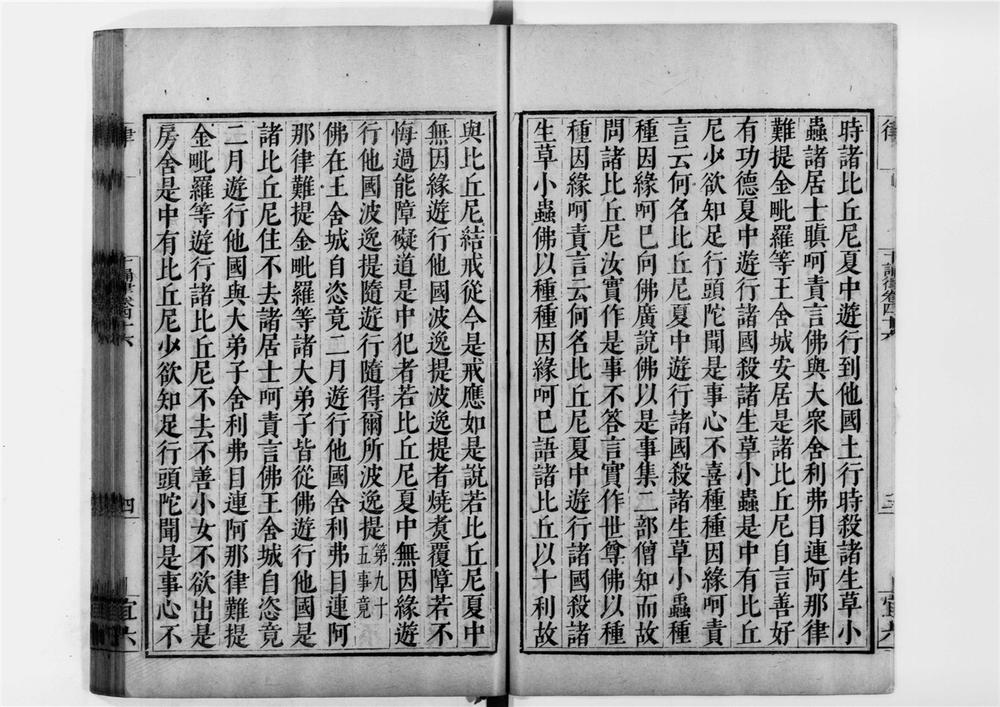 時諸比丘尼夏中遊行到他國土行時殺諸生草小
蟲諸居士瞋呵責言佛與大衆舍利弗目連阿那律
難提金毗羅等王舍城安居是諸比丘尼自言善好
有功德夏中遊行諸國殺諸生草小蟲是中有比丘
尼少欲知足行頭陀聞是事心不喜種種因緣呵責
言云何名比丘尼夏中遊行諸國殺諸生草小蟲種
種因緣呵已向佛廣說佛以是事集二部僧知而故
問諸比丘尼汝實作是事不答言實作世尊佛以種
種因緣呵責言云何名比丘尼夏中遊行諸國殺諸
生草小蟲佛以種種因緣呵已語諸比丘以十利故
與比丘尼結戒從今是戒應如是說若比丘尼夏中
無因緣遊行他國波逸提波逸提者燒煑覆障若不
悔過能障礙道是中犯者若比丘尼夏中無因緣遊
行他國波逸提隨遊行隨得爾所波逸提第九十五事竟
佛在王舍城自恣竟二月遊行他國舍利弗目連阿
那律難提金毗羅等諸大弟子皆從佛遊行他國是
諸比丘尼住不去諸居士呵責言佛王舍城自恣竟
二月遊行他國與大弟子舍利弗目連阿那律難提
金毗羅等遊行諸比丘尼不去不善小女不欲出是
房舍是中有比丘尼少欲知足行頭陀聞是事心不
律
四
宜六